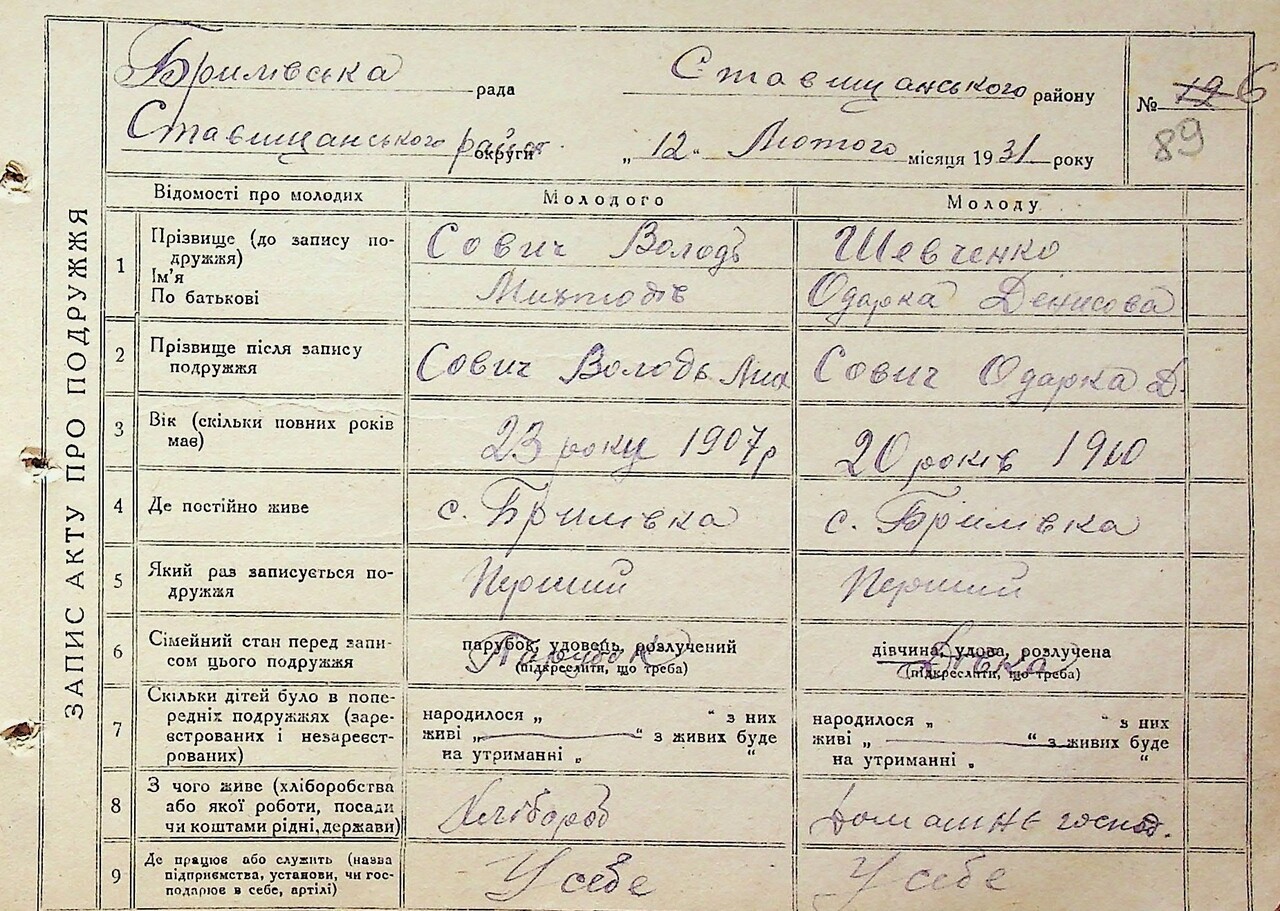 Бримівська рада Ставищанського району № 19 6
Ставищанського району округи „ 12 “ Лютого місяця 1931 року 89
ЗАПИС АКТУ ПРО ПОДРУЖЖЯ
Відомості про молодих Молодого Молоду
1 Прізвище (до запису подружжя) Сович Володь Шевченко
Ім'я
По батькові Одарка Денисова
2 Прізвище після запису подружжя Сович Володь Мих Сович Одарка Д.
3 Вік (скільки повних років має) 23 року 1907р 20 років 1910
4 Де постійно живе с. Бримівка с. Бримівка
5 Який раз записується подружжя Перший Перший
6 Сімейний стан перед записом цього подружжя парубок, удовець, розлучений дівчина, удова, розлучена
(підкреслити, що треба) (підкреслити, що треба)
Парубок Дівка
7 Скільки дітей було в попередніх подружжях (зареєстрованих і незареєстрованих)
народилося „ “ з них народилося „ “ з них
живі „ “ з живих буде живі „ “ з живих буде
на утриманні „ “ на утриманні „ “
8 З чого живе (хліборобства або якої роботи, посади чи коштами рідні, держави) Хлібороб Домашнє господ.
9 Де працює або служить (назва підприємства, установи, чи господарює в себе, артілі) У себе У себе